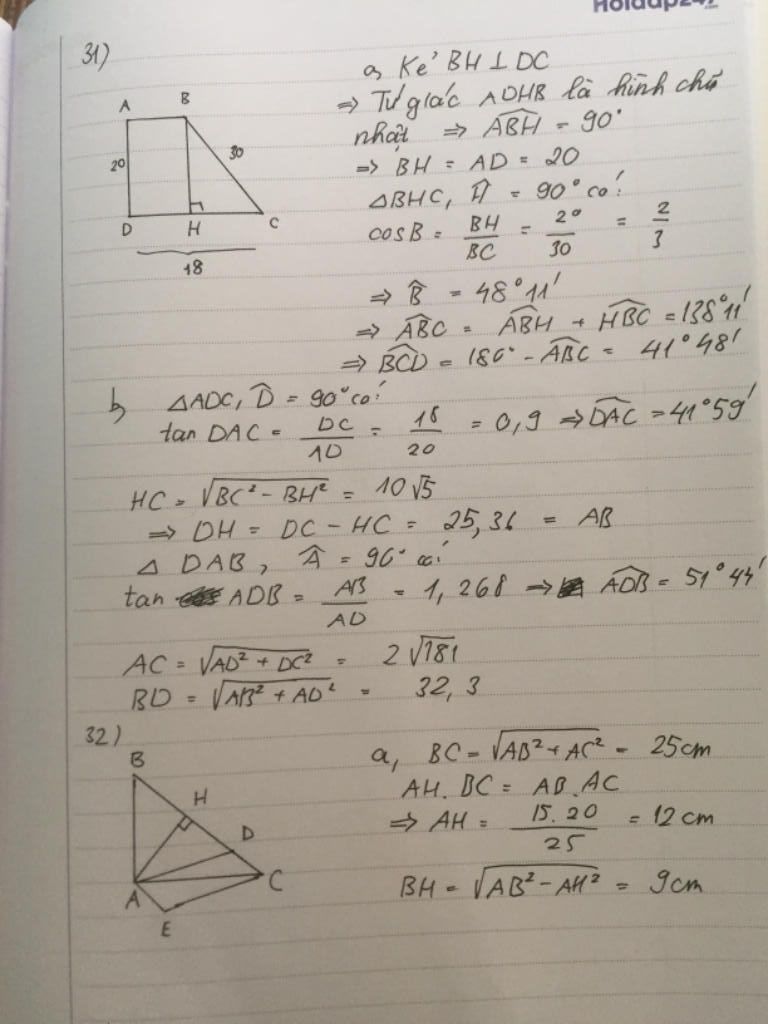 Hoidap247
31)
A B
20 30
D H C
18
a, Kẻ BH ⊥ DC
⇒ Tứ giác ADHB là hình chữ
nhật ⇒ ABH = 90°
⇒ BH = AD = 20
△BHC, H = 90° có:
cosB = BH/BC = 20/30 = 2/3
⇒ B = 48°11'
⇒ ABC = ABH + HBC = 138°11'
⇒ BCD = 180° - ABC = 41°48'
b, △ADC, D = 90° có:
tan DAC = DC/AD = 18/20 = 0,9 ⇒ DAC = 41°59'
HC = √(BC² - BH²) = 10√5
⇒ DH = DC - HC = 25,36 = AB
△ DAB, A = 90° có:
tan ADB = AB/AD = 1,268 ⇒ ADB = 51°44'
AC = √(AD² + DC²) = 2√181
BD = √(AB² + AD²) = 32,3
32)
B
H
D
A C
E
a, BC = √(AB² + AC²) = 25cm
AH. BC = AB. AC
⇒ AH = 15.20/25 = 12cm
BH = √(AB² - AH²) = 9cm